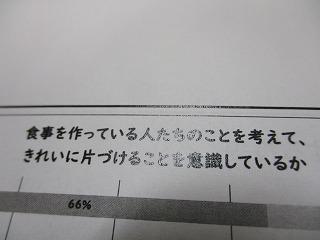 食事を作っている人たちのことを考えて、
きれいに片づけることを意識しているか
66%